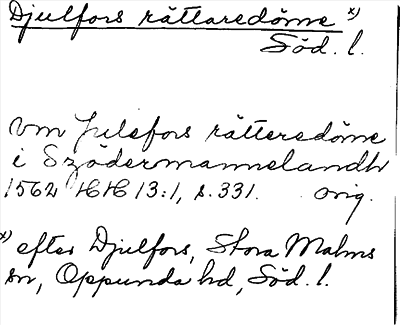 Djulfors rättaredöme x)
Söd. l.
vm Julefors rätteredöme
i Szödermannelandh
1562 HH 13:1, s. 331. orig.
x) efter Djulfors, Stora Malms
sn, Oppunda hd, Söd. l.